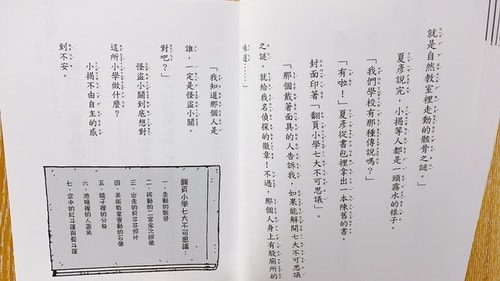 就是自然教室裡走動的骸骨之謎。
夏彥說完，小揭等人都是一頭霧水的樣子。
「我們學校有那種傳說嗎？」
「有啦！」夏彥從書包裡拿出一本陳舊的書。
封面印著「翻頁小學七大不可思議」。
「那個戴著面具的人告訴我，如果能解開七大不可思議
之謎，就給我名偵探的徽章！不過，那個人身上有股廁所的
味道……」
「我知道那個人是
誰，一定是怪盜小關，
對吧？」
怪盜小關到底想對
這所小學做什麼？
小揭不由自主的感
到不安。
翻頁小學七大不可思議：
一、走動的骸骨
二、
三、
四、美術教室會動的石像
五、鏡子裡的分身
六、池塘裡的人面魚
七、空中的紅斗篷與藍斗篷